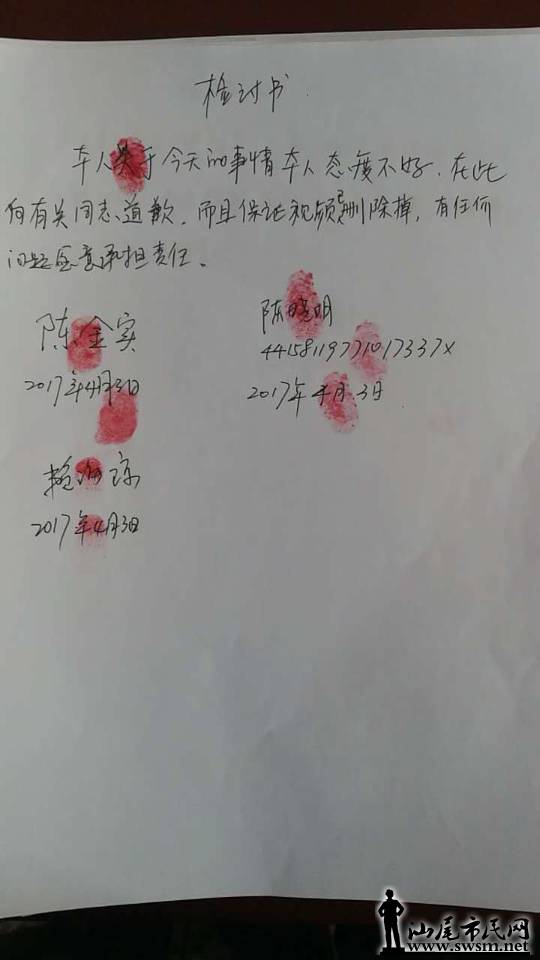 检讨书
本人关于今天的事情本人态度不好.在此
向有关同志道歉.而且保证视频已删除掉,有任何
问题愿意承担责任。
陈金实
2017年4月3日
陈晓明
44158119771017337x
2017年4月.3日
2017年4月3日
汕尾市民网
www.swsm.net